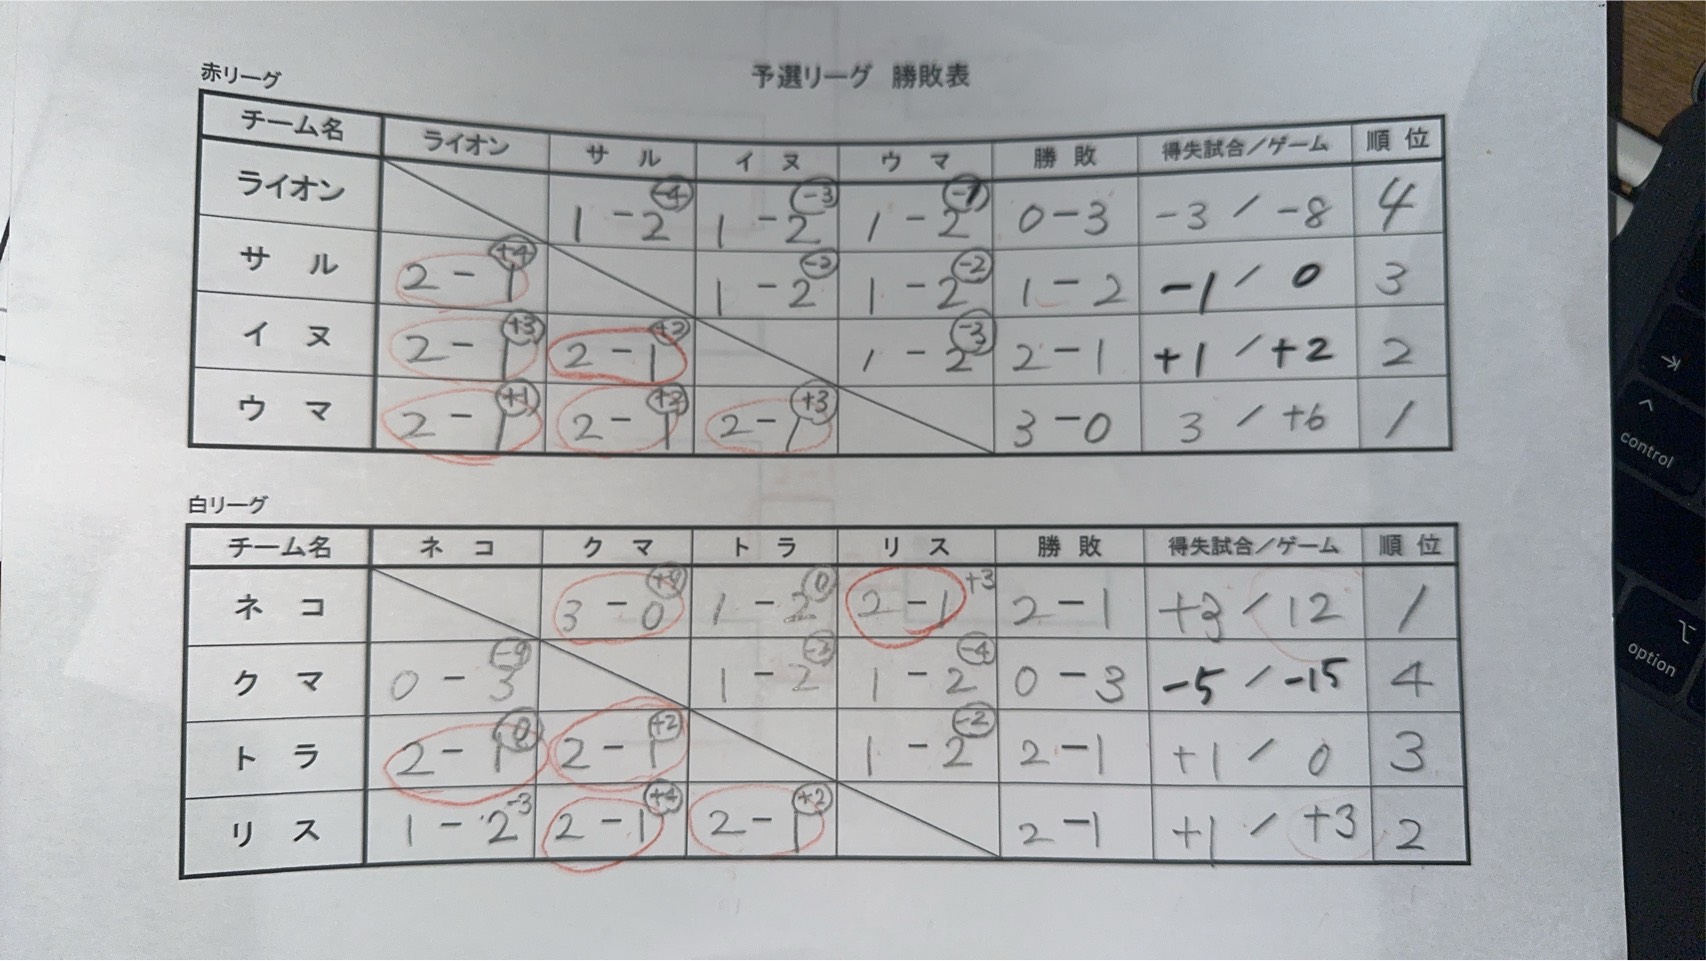 予選リーグ 勝敗表
赤リーグ
チーム名 ライオン サル イヌ ウマ 勝敗 得失試合／ゲーム 順位
ライオン 1-2 -4 1-2 -3 1-2 -1 0-3 -3/-8 4
サル 2-1 +4 1-2 -2 1-2 -2 1-2 -1/0 3
イヌ 2-1 +3 2-1 +2 1-2 -3 2-1 +1/+2 2
ウマ 2-1 +1 2-1 +2 2-1 +3 3-0 3/+6 1
白リーグ
チーム名 ネコ クマ トラ リス 勝敗 得失試合／ゲーム 順位
ネコ 3-0 +9 1-2 0 2-1 +3 2-1 +3/12 1
クマ 0-3 -9 1-2 -2 1-2 -4 0-3 -5/-15 4
トラ 2-1 0 2-1 +2 1-2 -2 2-1 +1/0 3
リス 1-2 -3 2-1 +4 2-1 +2 2-1 +1/+3 2
control
option